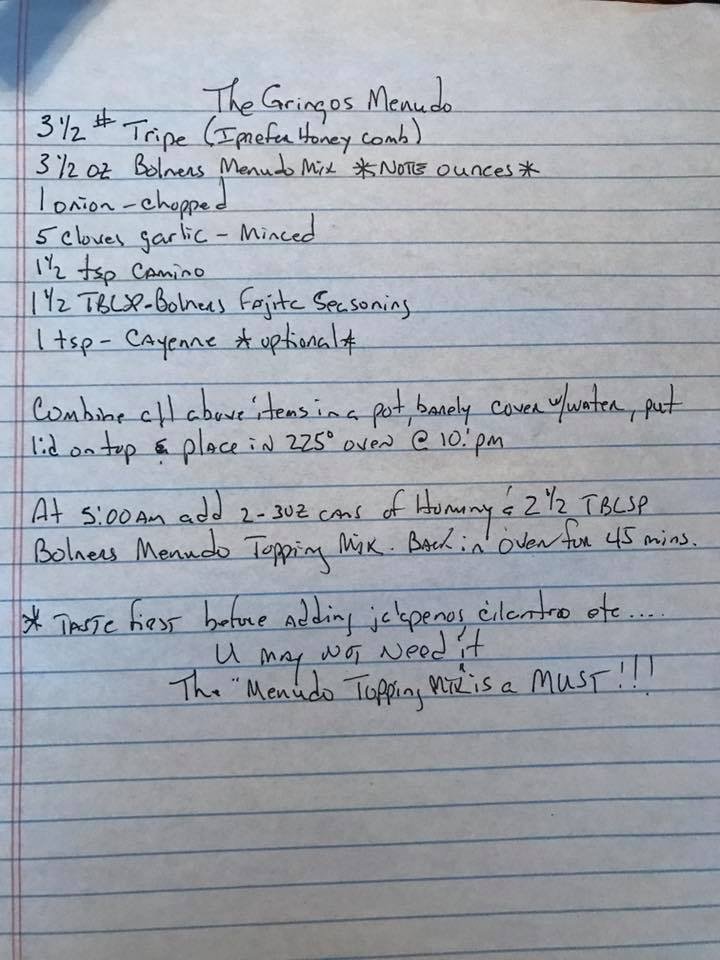 The Gringos Menudo
3 1/2 # Tripe (I prefer Honey comb)
3 1/2 oz Bolners Menudo Mix *NOTE ounces*
1 onion - chopped
5 cloves garlic - Minced
1 1/2 tsp Camino
1 1/2 TBLSP - Bolners Fajita Seasoning
1 tsp - Cayenne *optional*
Combine all above items in a pot, barely cover w/water, put
lid on top & place in 225° oven @ 10: pm
At 5:00 AM add 2 - 30z cans of Hominy & 2 1/2 TBLSP
Bolners Menudo Topping Mix. Back in oven for 45 mins.
* TASTE first before adding jalapenos, cilantro etc....
U may NOT Need it
The "Menudo Topping Mix" is a MUST!!!